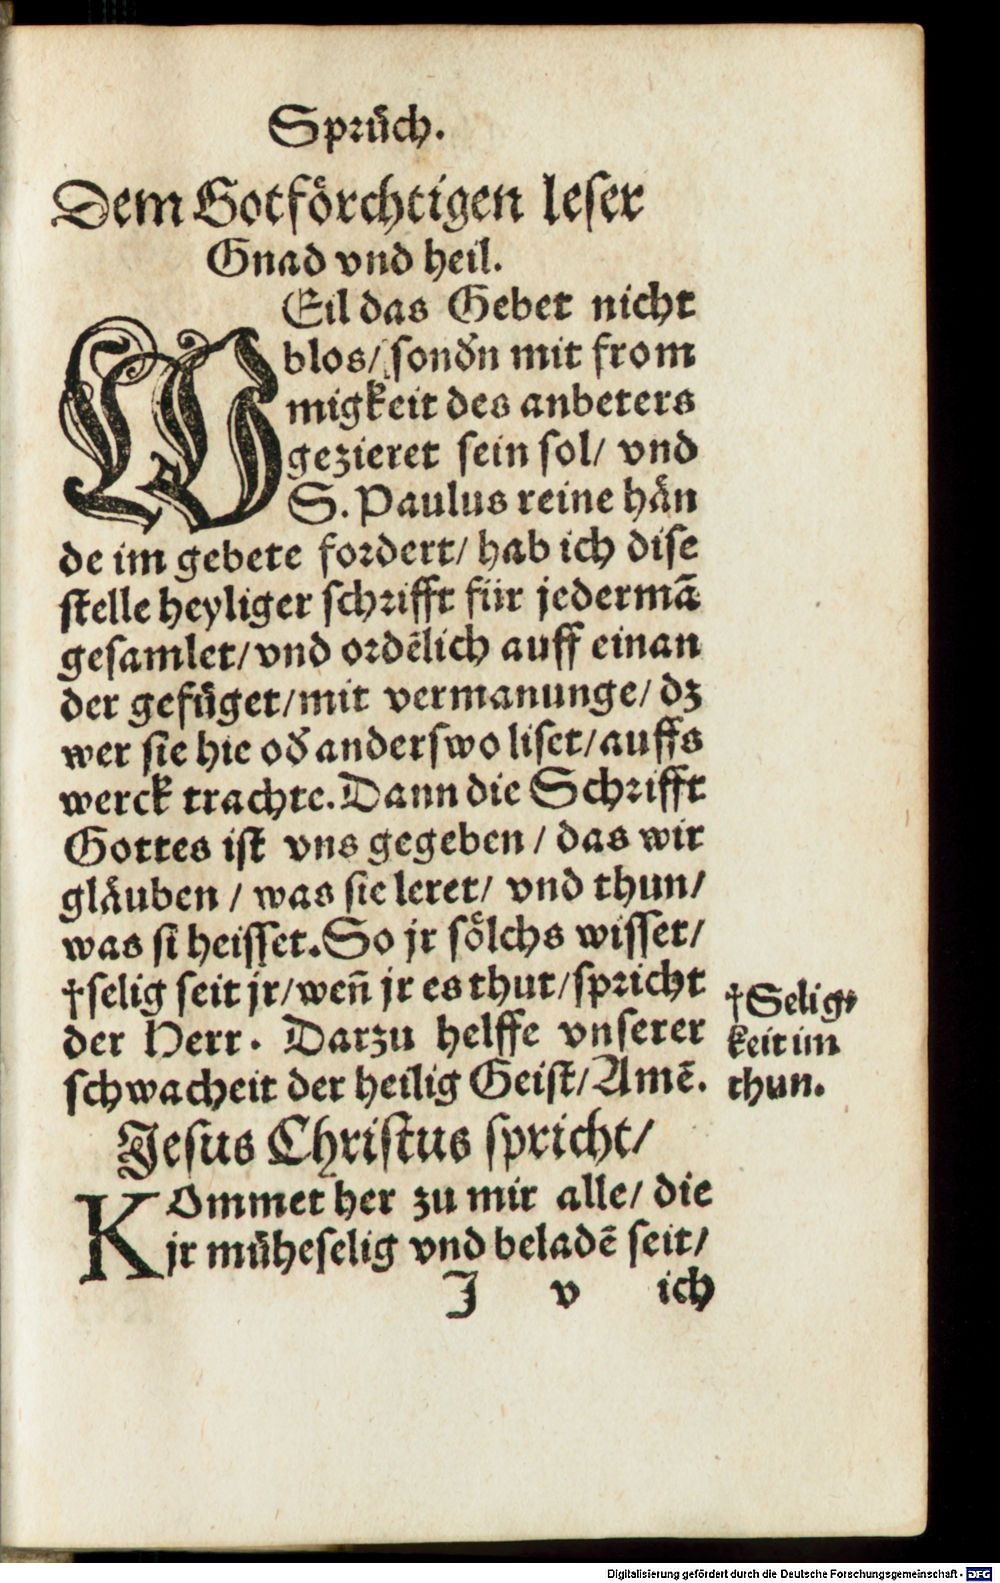 Sprüch.
Dem Gotförchtigen leser
Gnad vnd heil.
WEil das Gebet nicht
blos/ sonđn mit from
migkeit des anbeters
gezieret sein sol/ vnd
S. Paulus reine hän
de im gebete fordert/ hab ich dise
stelle heyliger schrifft für jedermā
gesamlet/ vnd ordēlich auff einan
der gefüget/ mit vermanunge/ dz
wer sie hie ođ anderswo liset/ auffs
werck trachte. Dann die Schrifft
Gottes ist vns gegeben / das wir
gläuben / was sie leret/ vnd thun/
was si heisset. So jr sölchs wisset/
†selig seit jr/ weñ jr es thut/ spricht
der Herr. Darzu helffe vnserer
schwacheit der heilig Geist/ Amē.
†Selig⸗
keit im
thun.
Jesus Christus spricht/
KOmmet her zu mir alle/ die
jr müheselig vnd beladē seit/
J v ich
Digitalisierung gefördert durch die Deutsche Forschungsgemeinschaft - DFG